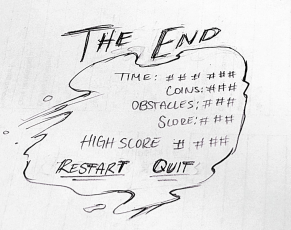 THE END
TIME: ## # ###
COINS: ###
OBSTACLES: ###
SCORE: ###
HIGH SCORE # ###
RESTART QUIT